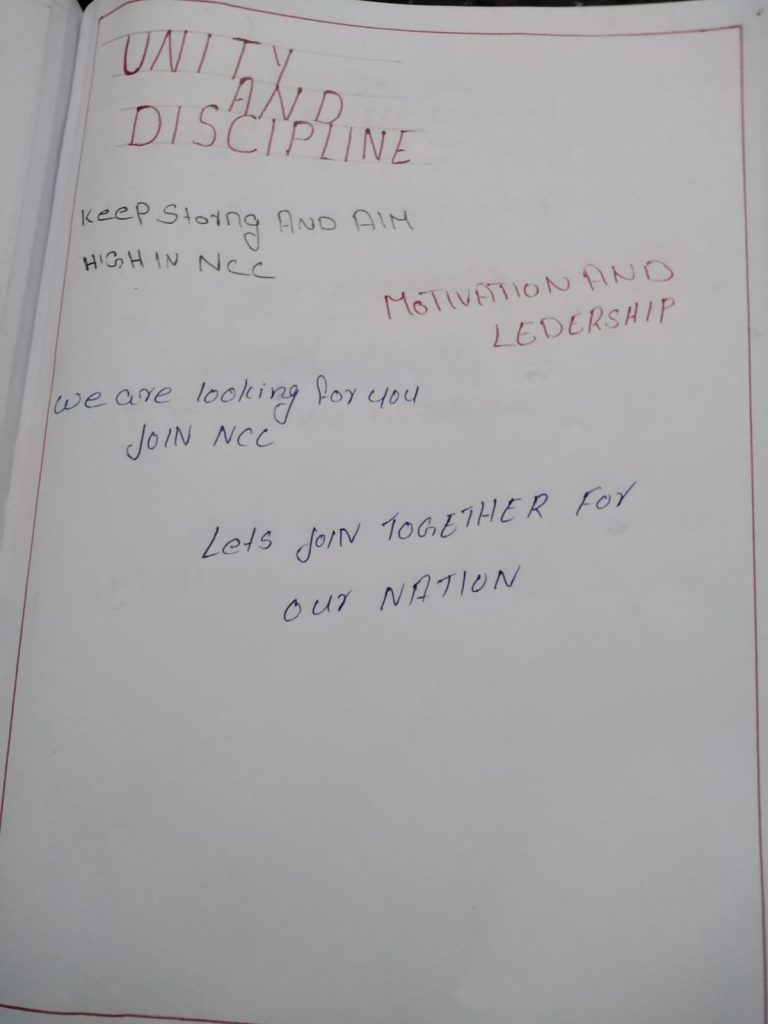 UNITY
AND
DISCIPLINE
KeeP Storng AND AIM
HIGH IN NCC
MOTIVATION AND
LEDERSHIP
we are looking for you
JOIN NCC
Lets JOIN TOGETHER For
our NATION